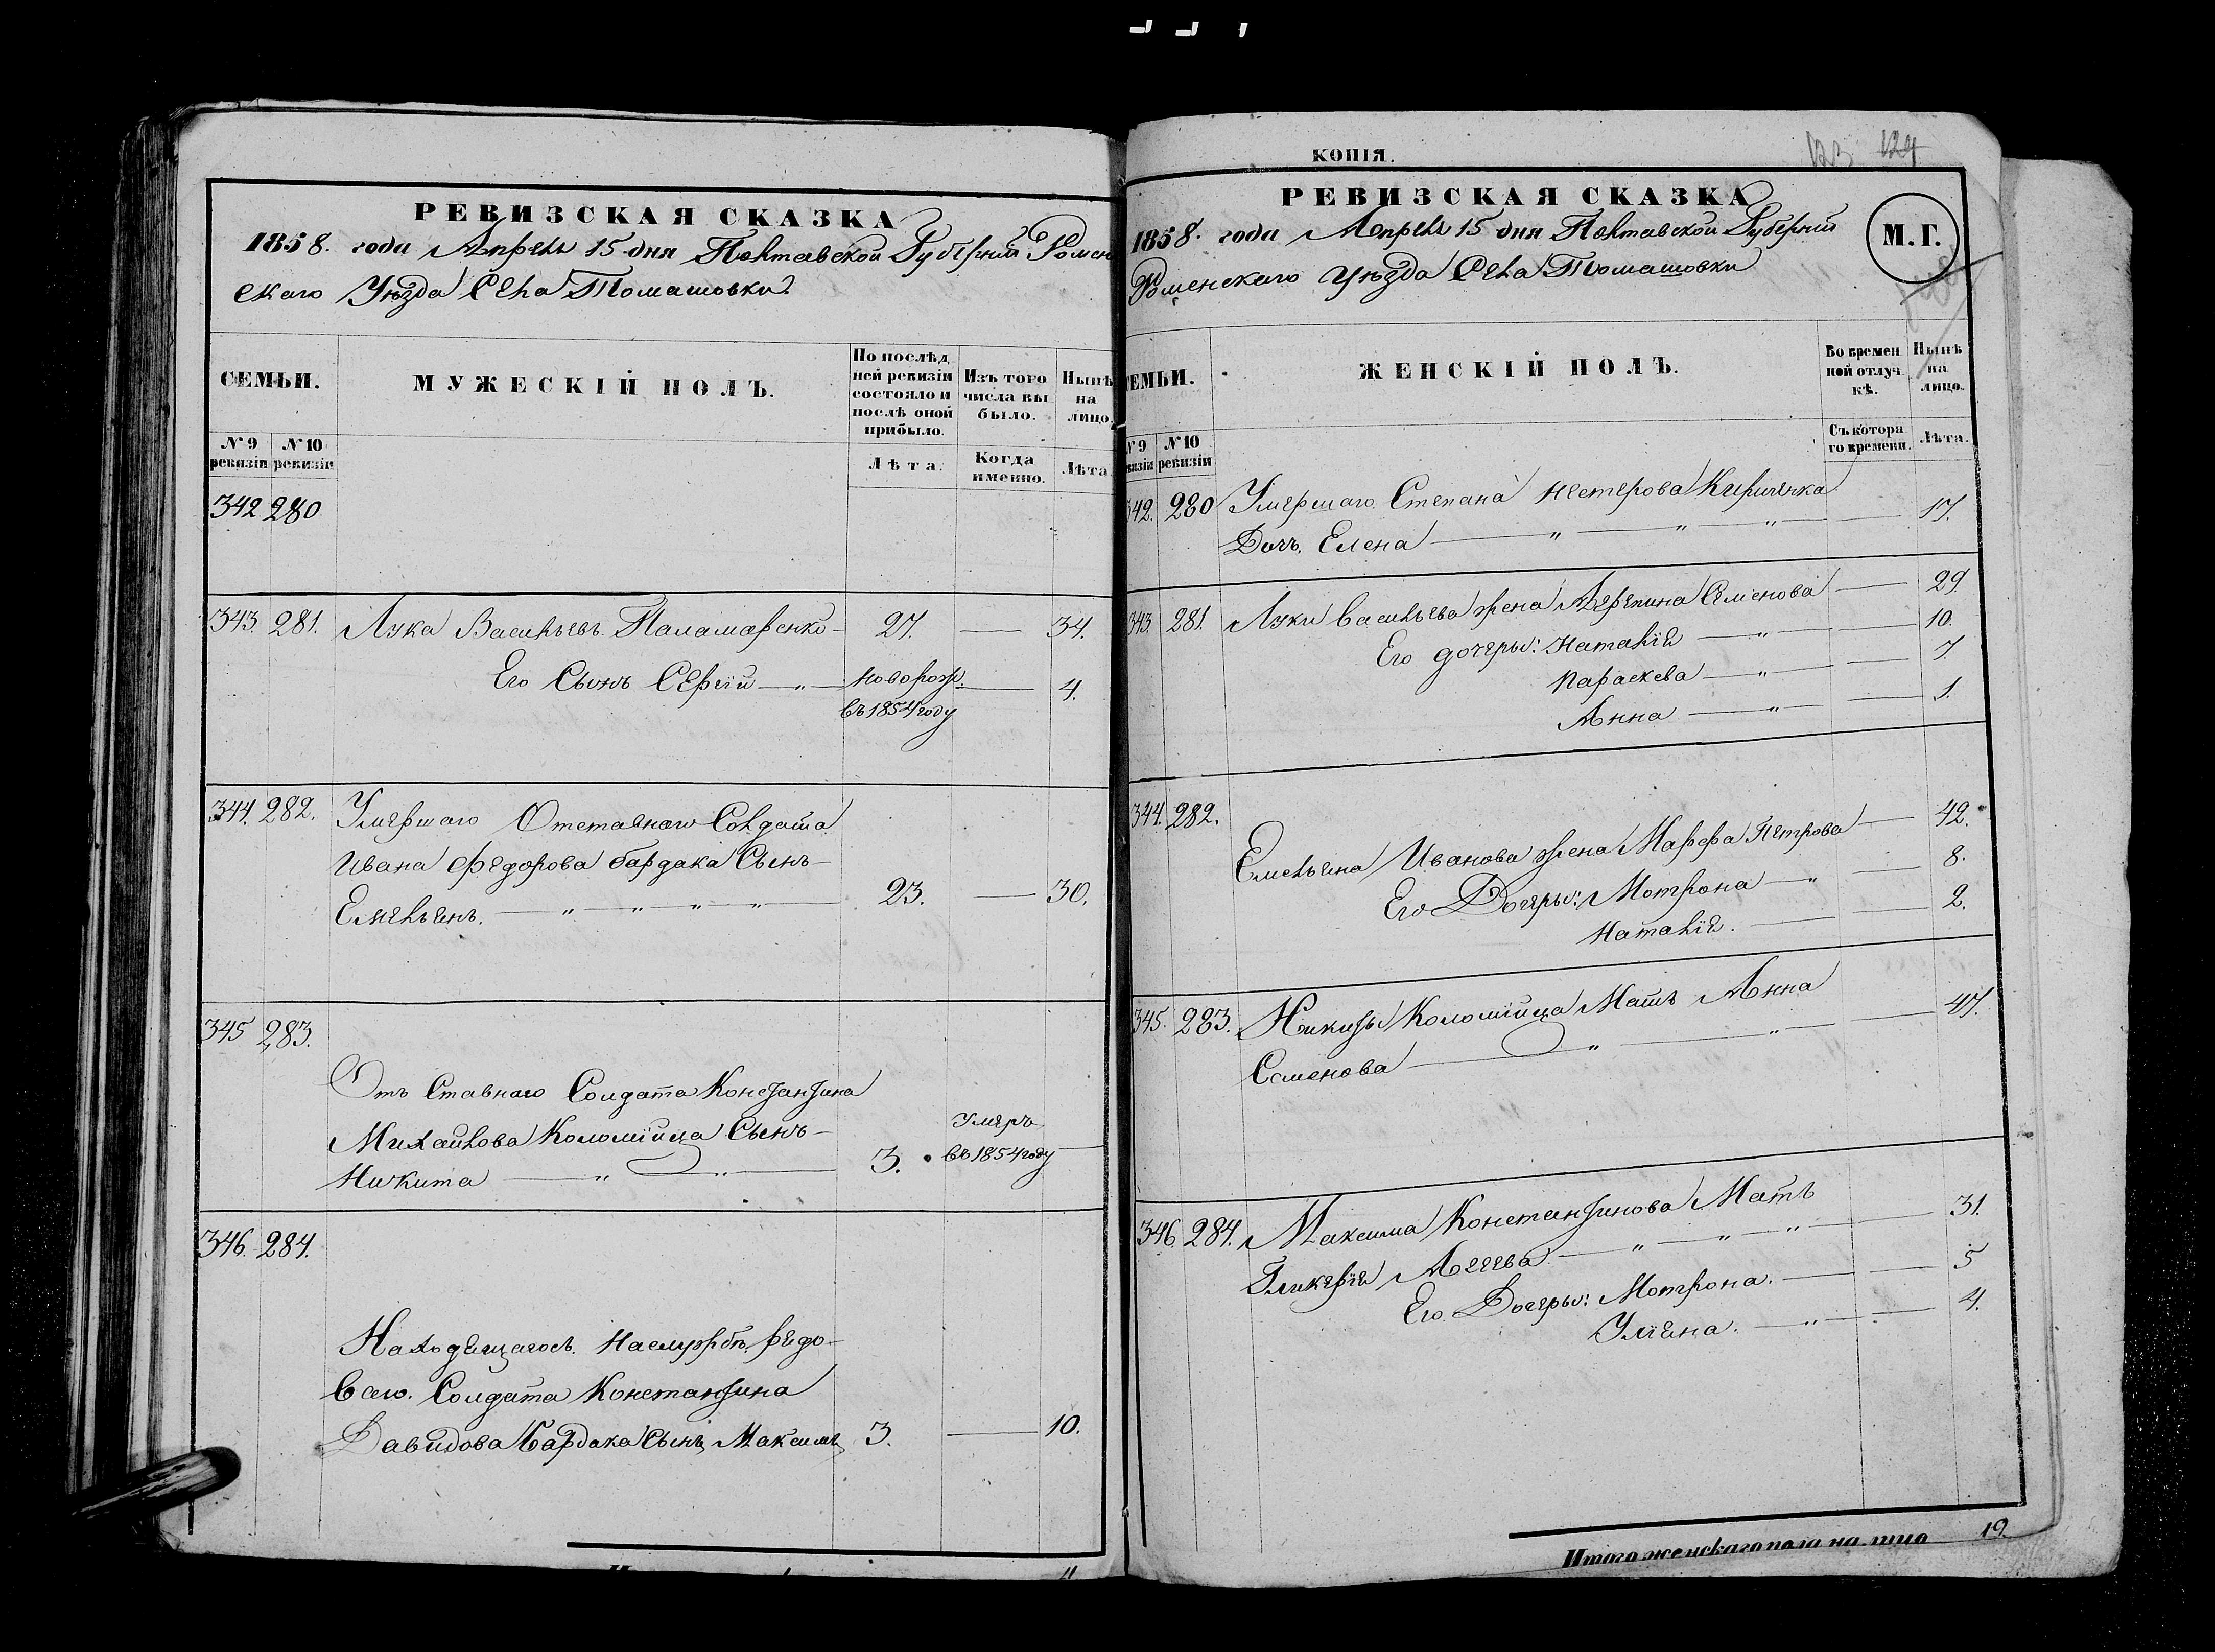 РЕВИЗСКАЯ СКАЗКА
1858. года Апреля 15 дня Полтавской Губернии Ромен
скаго Уѣзда Села Томашовки.
СЕМЬИ.
МУЖЕСКІЙ ПОЛЪ.
По послѣд
ней ревизіи
состояло и
послѣ оной
прибыло.
Изъ того
числа вы
было.
Нынѣ
на
лицо.
№ 9
ревизіи
№ 10
ревизіи
Лѣта.
Когда
именно.
Лѣта
342 280
343. 281. Лука Васильевъ Паламаренко 27. 34.
Его Сынъ Сергій новорож. 4.
въ 1854 году
344. 282. Умершаго Отставнаго Солдата
Ивана Федорова Бардака Сынъ
Емельянъ. 23. 30.
345 283.
Отъ Ставнаго Солдата Константина
Михайлова Коломійца Сынъ Умеръ
Никита 3. въ 1854 году
346. 284.
Находящагося На службѣ рядо-
ваго. Солдата Константина
Давидова Бардака Сынъ Максимъ 3. 10.
4
КОПІЯ.
123 124
РЕВИЗСКАЯ СКАЗКА
1858. года Апреля 15 дня Полтавской Губернии
Роменскаго Уѣзда Села Томашовки
М. Г.
ЕМЬИ.
ЖЕНСКІЙ ПОЛЪ.
Во времен
ной отлуч
кѣ.
Нынѣ
на
лицо.
№ 9
визіи
№ 10
ревизіи
Съ котора
го времени.
Лѣта.
342. 280 Умершаго Степана Нестерова Кириченка
Дочь, Елена 17.
343. 281. Луки Васильева жена Агрепина Семенова 29
Его дочеры: Наталія 10.
Параскева 7.
Анна 1.
344. 282.
Емельяна Иванова жена Марфа Петрова 42.
Его Дочеры: Мотрона 8.
Наталія. 2.
345. 283. Никиты Коломійца Мать Анна
Семенова 47.
346. 284. Максима Константинова Мать
Гликерія 31.
Его Дочеры: Мотрона. 5
Уліяна. 4.
Итого женскаго пола на лицо 19.